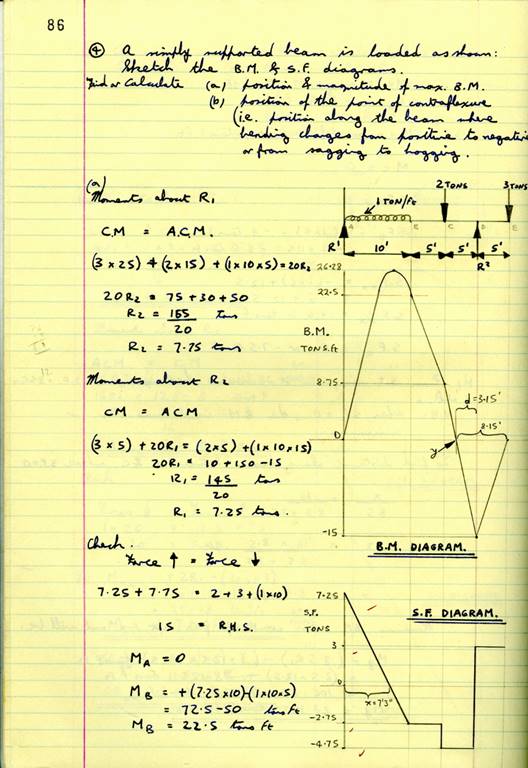 86
④ A simply supported beam is loaded as shown:
Sketch the B.M. & S.F. diagrams.
Find or Calculate (a) position & magnitude of max. B.M.
(b) position of the point of contraflexure
(i.e. position along the beam where
bending changes from positive to negative
or from sagging to hogging.
(a)
Moments about R1
CM = A.C.M.
(3 x 25) + (2 x 15) + (1 x 10 x 5) = 20R2
20R2 = 75 + 30 + 50
R2 = 155 tons
20
R2 = 7.75 tons
Moments about R2
CM = ACM
(3 x 5) + 20R1 = (2x5) + (1x10x15)
20R1 = 10 + 150 - 15
R1 = 145 tons
20
R1 = 7.25 tons.
Check.
Force ↑ = Force ↓
7.25 + 7.75 = 2 + 3 + (1x10)
15 = R.H.S.
MA = 0
MB = +(7.25 x 10) - (1x10x5)
= 72.5 - 50 tons ft
MB = 22.5 tons ft
2 TONS 3 TONS
1 TON/ft
A B C D E
R1 10' 5' 5' 5'
R2
26.28
22.5
B.M.
TONS.ft
8.75
d = 3.15'
8.15'
0
y
-15
B.M. DIAGRAM.
7.25
S.F.
TONS
S.F. DIAGRAM.
3
0
x = 7'3"
-2.75
-4.75